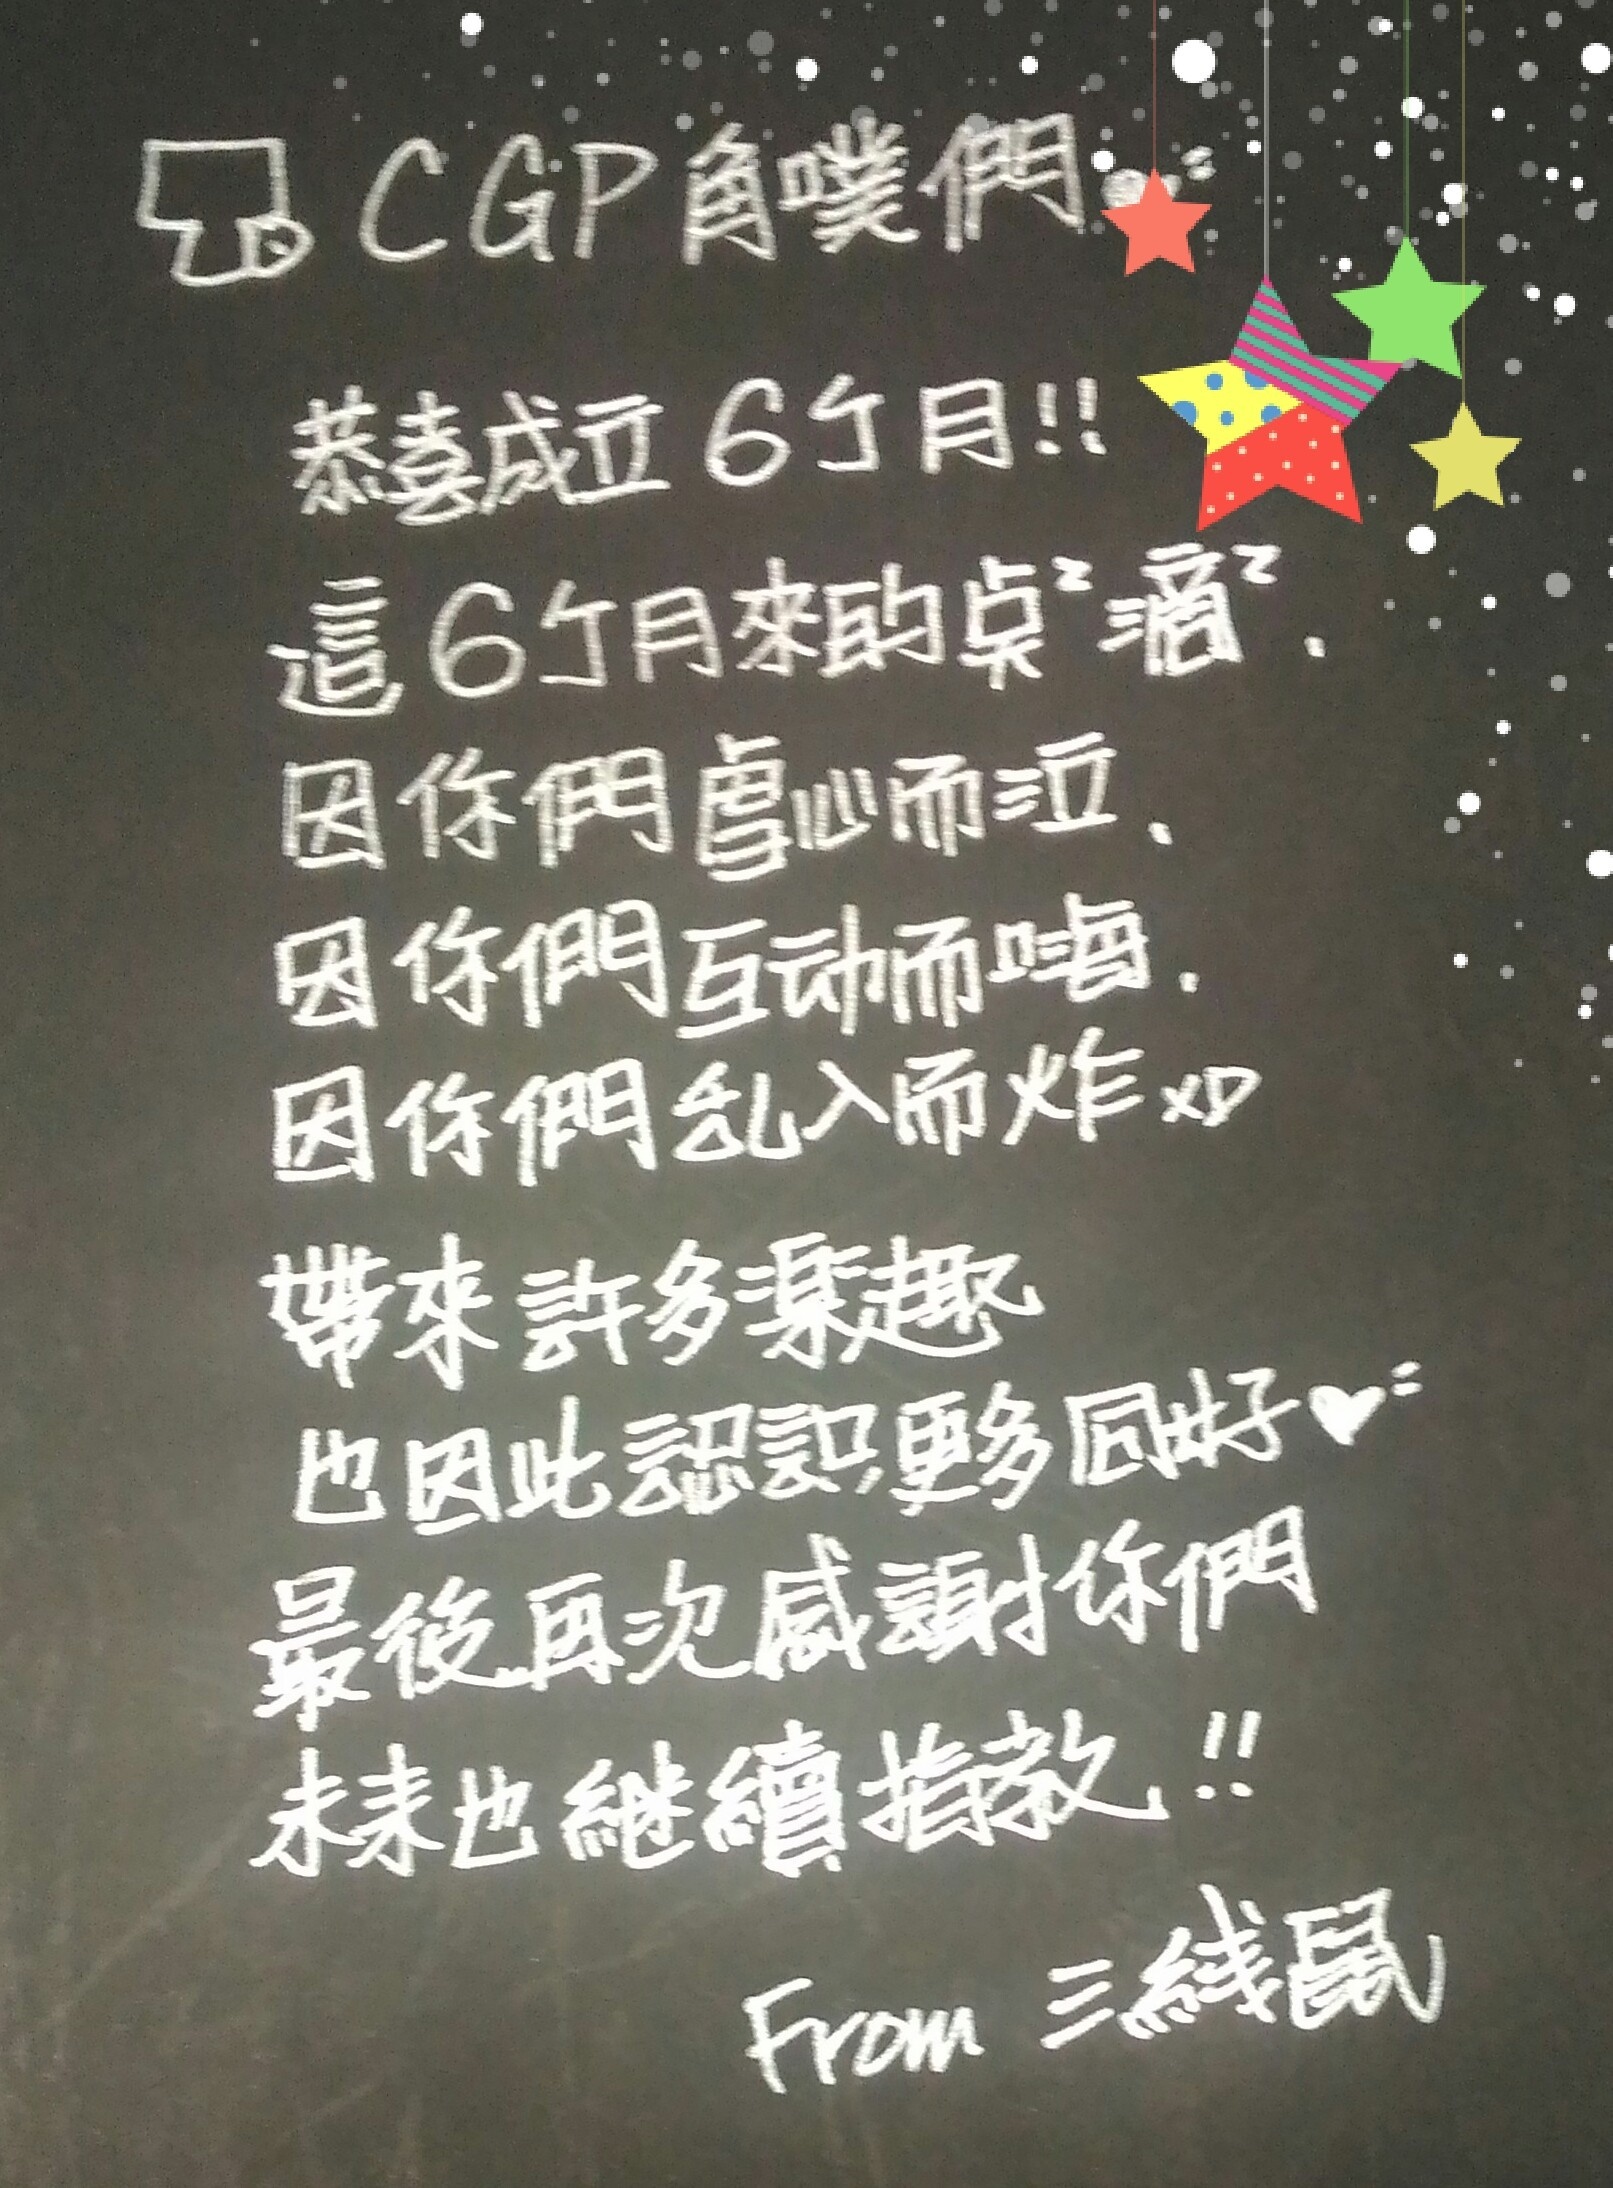 CGP角噗們
恭喜成立6个月!!
這6个月來的点ㄹ滴ㄹ.
因你們虐心而泣.
因你們互动而嗨.
因你們乱入而炸XD
帶來許多樂趣
也因此認識更多同好♥
最後再次感謝你們
未来也継續指教!!
From 三線鼠